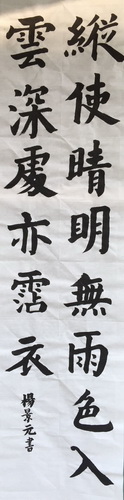 縱使晴明無雨色入
雲深處亦霑衣
楊景元書